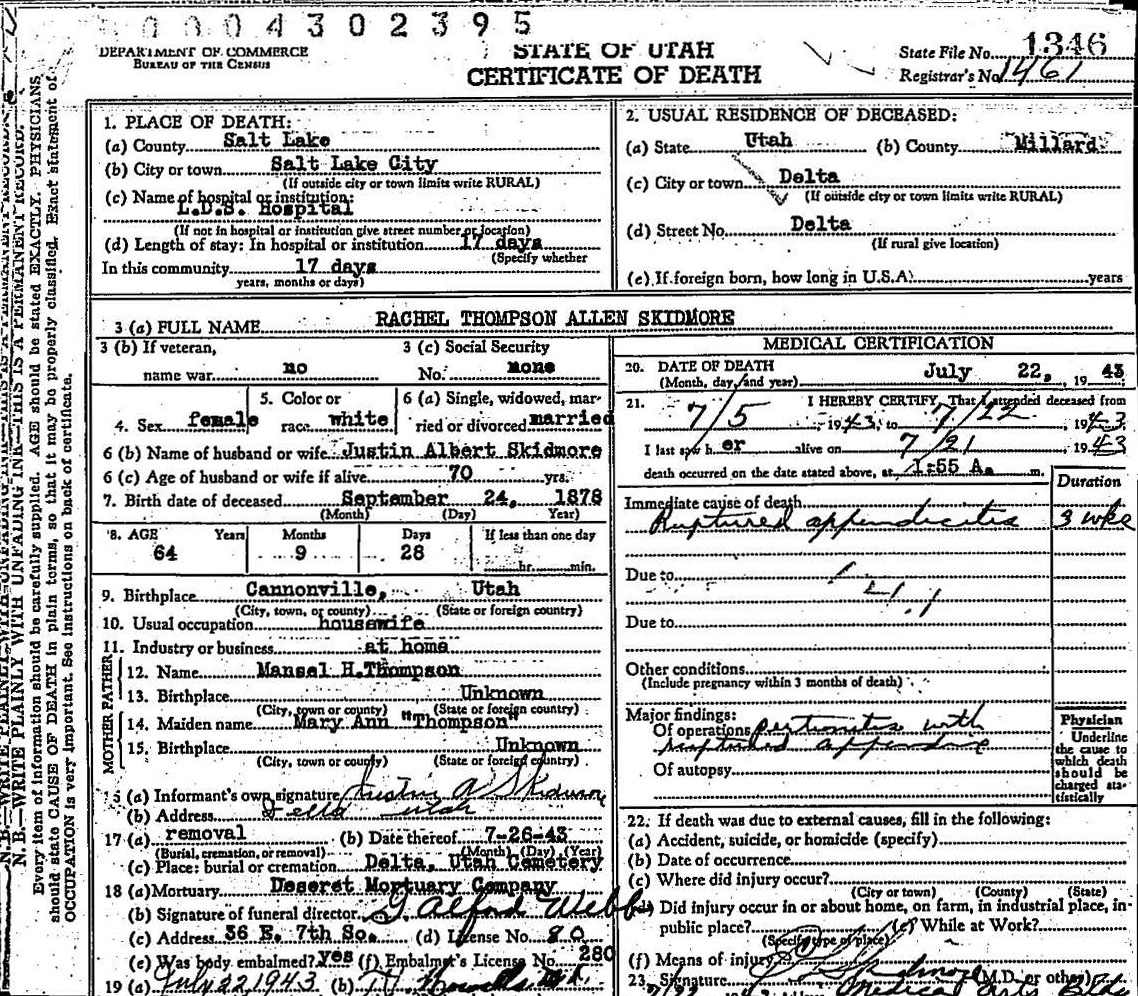 0004302395
DEPARTMENT OF COMMERCE
BUREAU OF THE CENSUS
STATE OF UTAH
CERTIFICATE OF DEATH
State File No. 1346
Registrar's No. 1461
N.B.—WRITE PLAINLY WITH UNFADING INK—THIS IS A PERMANENT RECORD.
Every item of information should be carefully supplied. AGE should be stated EXACTLY. PHYSICIANS
should state CAUSE OF DEATH in plain terms, so that it may be properly classified. Exact statement of
OCCUPATION is very important. See instructions on back of certificate.
1. PLACE OF DEATH:
(a) County Salt Lake
(b) City or town Salt Lake City
(If outside city or town limits write RURAL)
(c) Name of hospital or institution:
L.D.S. Hospital
(If not in hospital or institution give street number or location)
(d) Length of stay: In hospital or institution 17 days
(Specify whether
In this community 17 days
years, months or days)
2. USUAL RESIDENCE OF DECEASED:
(a) State Utah (b) County Millard
(c) City or town Delta
(If outside city or town limits write RURAL)
(d) Street No. Delta
(If rural give location)
(e) If foreign born, how long in U.S.A. years
3 (a) FULL NAME RACHEL THOMPSON ALLEN SKIDMORE
3 (b) If veteran, name war no
3 (c) Social Security No. none
4. Sex female
5. Color or race white
6 (a) Single, widowed, married or divorced married
6 (b) Name of husband or wife Justin Albert Skidmore
6 (c) Age of husband or wife if alive 70 yrs.
7. Birth date of deceased September 24, 1878
(Month) (Day) Year)
8. AGE Years Months Days If less than one day
64 9 28 hr. min.
9. Birthplace Cannonville, Utah
(City, town, or county) (State or foreign country)
10. Usual occupation housewife
11. Industry or business at home
FATHER
12. Name Mansel H.Thompson
13. Birthplace Unknown
(City, town or county) (State or foreign country)
MOTHER
14. Maiden name Mary Ann "Thompson"
15. Birthplace Unknown
(City, town or county) (State or foreign country)
(a) Informant's own signature Justin A Skidmore
(b) Address Delta Utah
17 (a) removal (b) Date thereof 7-26-43
(Burial, cremation, or removal) (Month) (Day) (Year)
(c) Place: burial or cremation Delta, Utah Cemetery
18 (a) Mortuary Deseret Mortuary Company
(b) Signature of funeral director G Alford Webb
(c) Address 36 E. 7th So. (d) License No. 80
(e) Was body embalmed? Yes (f) Embalmer's License No. 280
19 (a) July 22, 1943 (b)
MEDICAL CERTIFICATION
20. DATE OF DEATH
(Month, day, and year) July 22, 19 43
21. I HEREBY CERTIFY, That I attended deceased from
7/5 1943, to 7/22, 1943
I last saw h er alive on 7/21 1943
death occurred on the date stated above, at 1:55 A. m.
Duration
Immediate cause of death
Ruptured appendicites 3 wks
Due to
Due to
Other conditions
(Include pregnancy within 3 months of death)
Major findings:
Of operations peritonites with
ruptured appendix
Of autopsy
Physician
Underline
the cause to
which death
should be
charged sta-
tistically
22. If death was due to external causes, fill in the following:
(a) Accident, suicide, or homicide (specify)
(b) Date of occurrence
(c) Where did injury occur?
(City or town) (County) (State)
(d) Did injury occur in or about home, on farm, in industrial place, in-
public place? (e) While at Work?
(Specify type of place)
(f) Means of injury
23. Signature Skidmore (M.D. or other)
7/22 Medical Arts Bldg